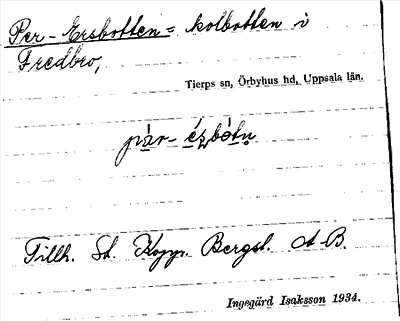 Per-Ersbotten = kolbotten i
Fredbro,
Tierps sn, Örbyhus hd, Uppsala län.
pàr-ézbótn̥
Tillh. St. Kopp. Bergsl. A-B.
Ingegärd Isaksson 1934.